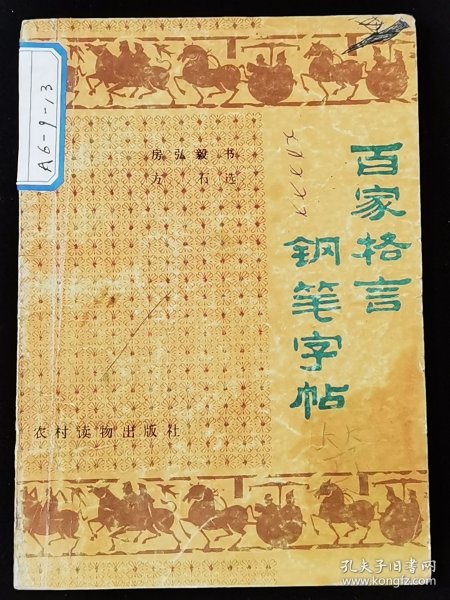 A6-9-13
房弘毅 书
方 石 选
百家格言
钢笔字帖
农村读物出版社
孔夫子旧书网
www.kongfz.com